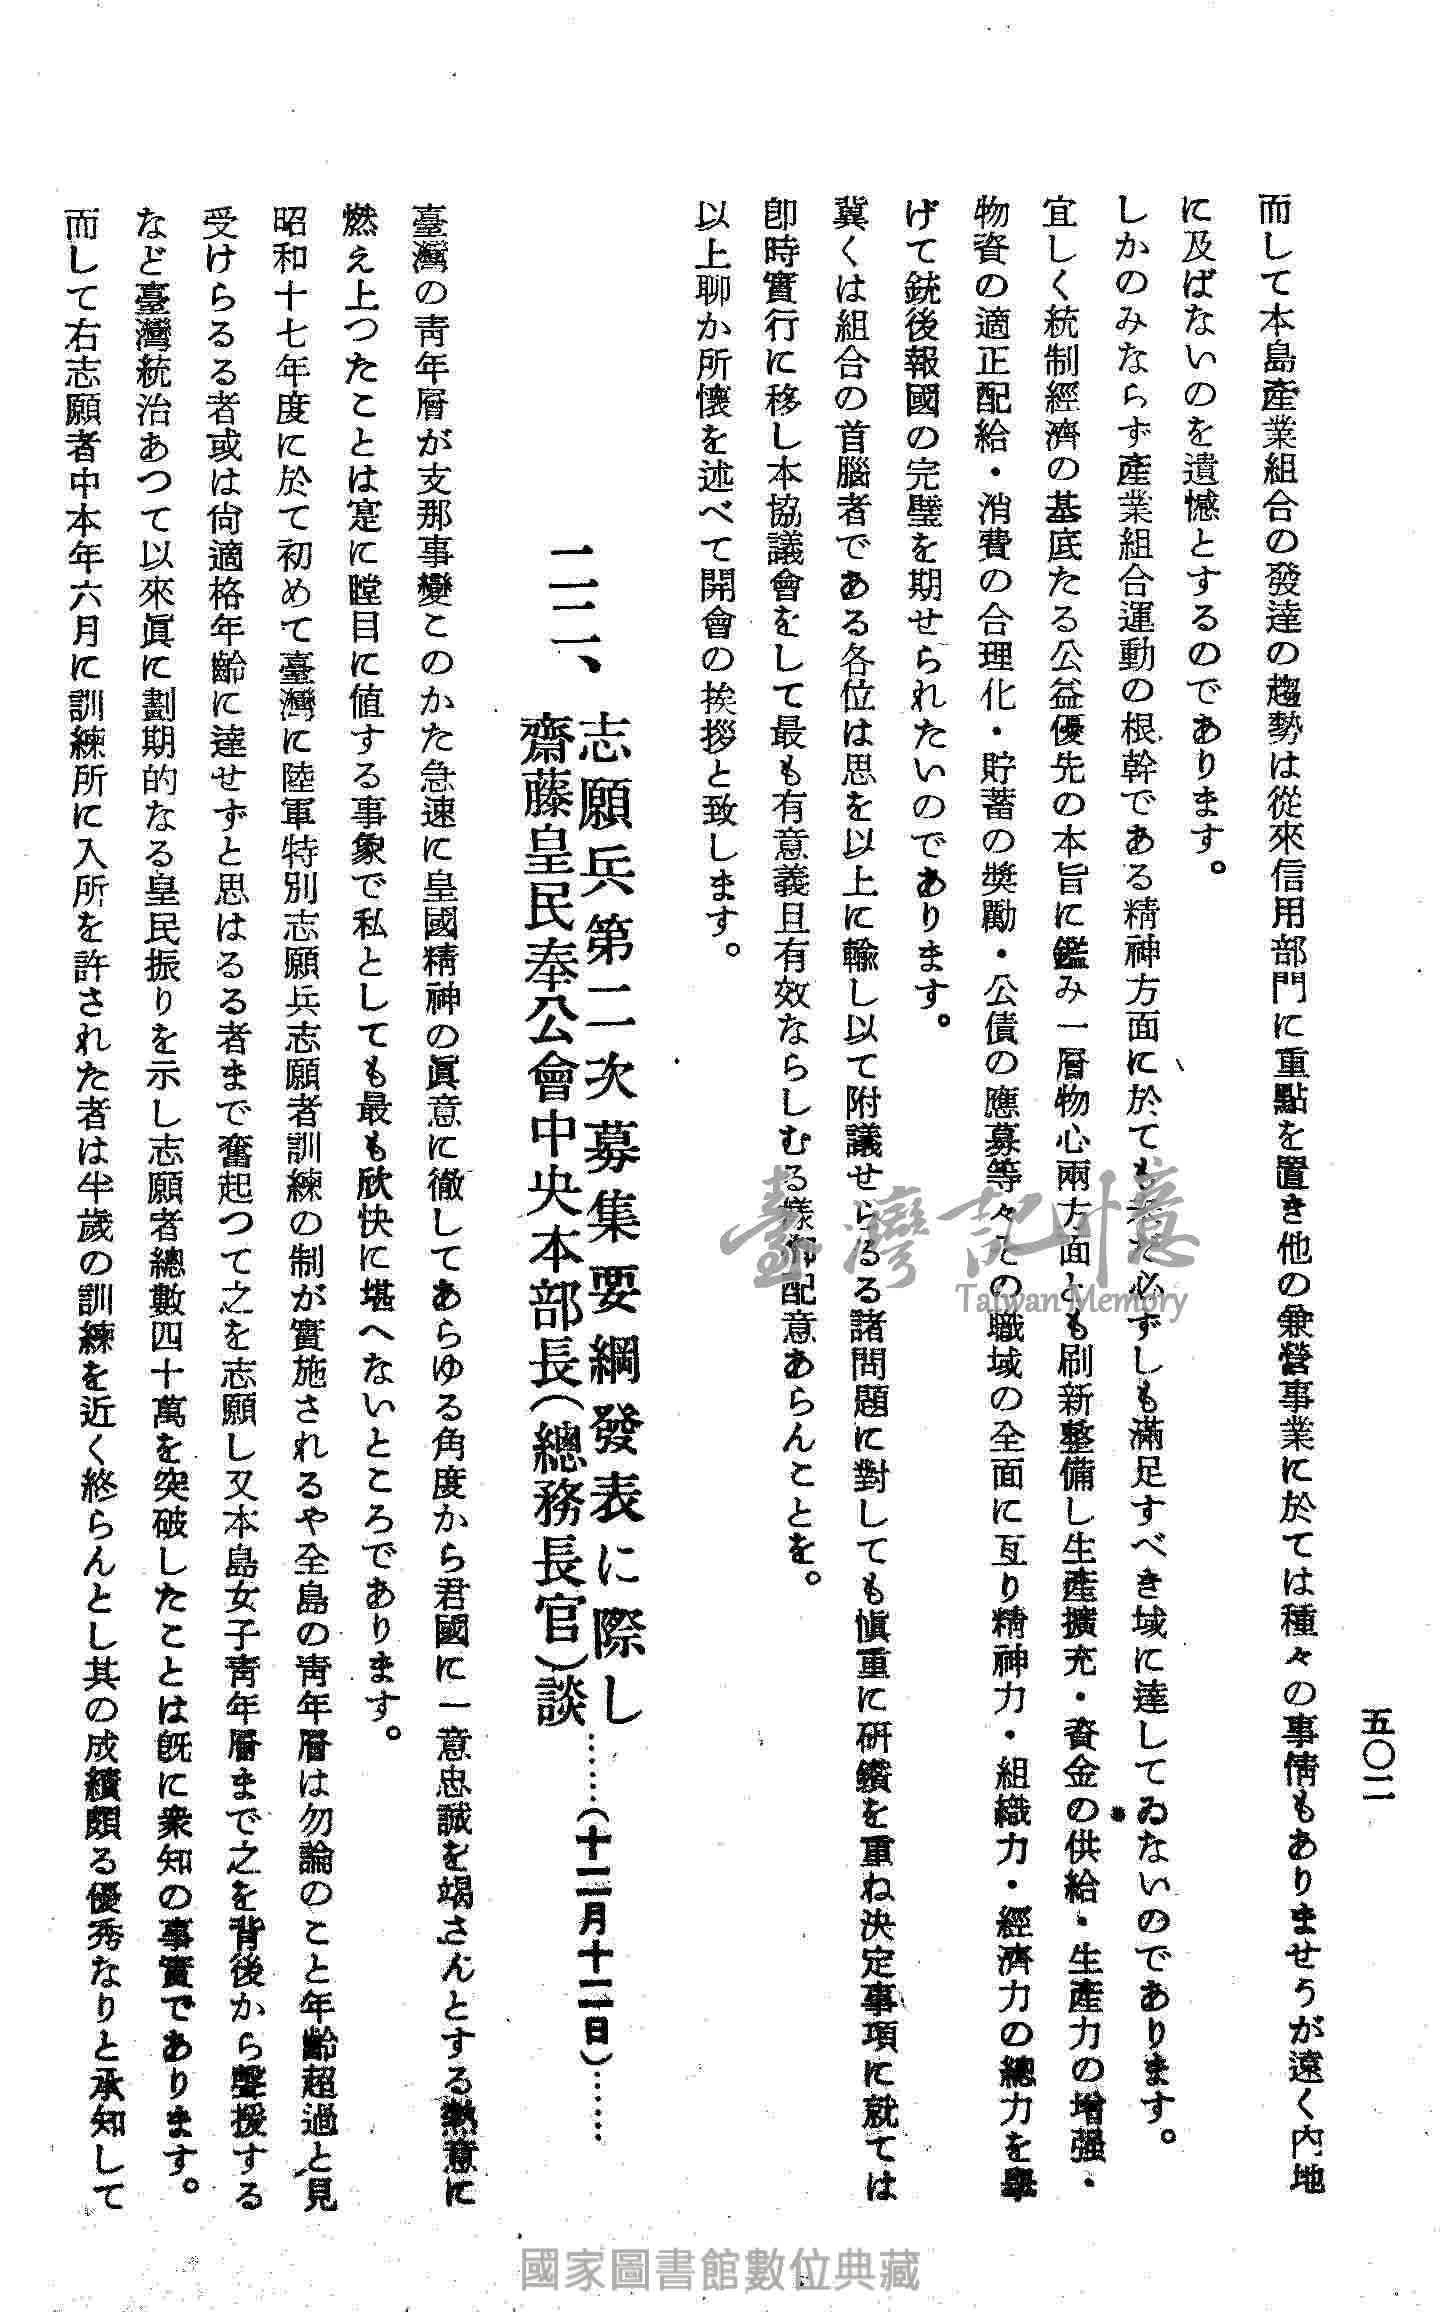 五〇二
而して本島產業組合の發達の趨勢は從來信用部門に重點を置き他の兼營事業に於ては種々の事情もありませうが遠く內地
に及ばないのを遺憾とするのであります。
しかのみならず產業組合運動の根幹である精神方面に於ても未だ必ずしも滿足すべき域に達してゐないのであります。
宜しく統制經濟の基底たる公益優先の本旨に鑑み一層物心兩方面とも刷新整備し生產擴充・資金の供給・生產力の增强・
物資の適正配給・消費の合理化・貯蓄の奬勵・公債の應募等々その職域の全面に亙り精神力・組織力・經濟力の總力を擧
げて銃後報國の完璧を期せられたいのであります。
冀くは組合の首腦者である各位は思を以上に輸し以て附議せらるる諸問題に對しても愼重に硏鑽を重ね決定事項に就ては
卽時實行に移し本協議會をして最も有意義且有效ならしむる樣御配意あらんことを。
以上聊か所懷を述べて開會の挨拶と致します。
二二、志願兵第二次募集要綱發表に際し
齋藤皇民奉公會中央本部長(總務長官)談……(十二月十二日)……
臺灣の靑年層が支那事變このかた急速に皇國精神の眞意に徹してあらゆる角度から君國に一意忠誠を竭さんとする熱意に
燃え上つたことは寔に瞠目に値する事象で私としても最も欣快に堪へないところであります。
昭和十七年度に於て初めて臺灣に陸軍特別志願兵志願者訓練の制が實施されるや全島の靑年層は勿論のこと年齡超過と見
受けらるる者或は尙適格年齡に達せずと思はるる者まで奮起つて之を志願し又本島女子靑年層まで之を背後から聲援する
など臺灣統治あつて以來眞に劃期的なる皇民振りを示し志願者總數四十萬を突破したことは旣に衆知の事實であります。
而して右志願者中本年六月に訓練所に入所を許された者は半歲の訓練を近く終らんとし其の成績頗る優秀なりと承知して
臺灣記憶
Taiwan Memory
國家圖書館數位典藏